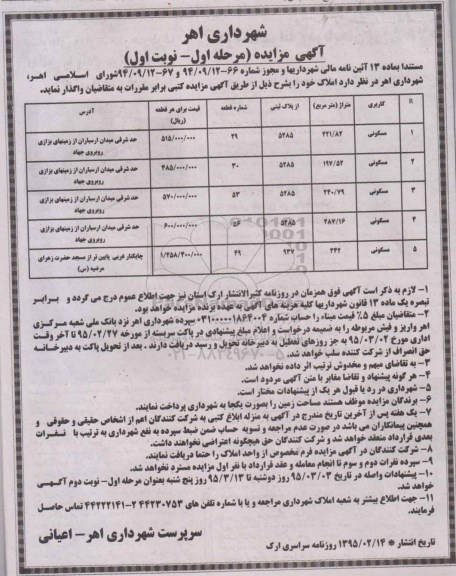 شهرداری اهر
آگهی مزایده (مرحله اول- نوبت اول)
مستندا بماده ۱۳ آئین نامه مالی شهرداریها و مجوز شماره ۶۶-۹۴/۰۹/۱۲ و ۶۷-۹۴/۰۹/۱۲شورای اسلامی اهر،
شهرداری اهر در نظر دارد املاک خود را بشرح ذیل از طریق آگهی مزایده کتبی برابر مقررات به متقاضیان واگذار نماید.
R کاربری متراژ (متر مربع) از پلاک ثبتی شماره قطعه قیمت برای هر قطعه (ریال) آدرس
۱ مسکونی ۲۲۱/۸۲ ۵۲۸۵ ۲۹ ۵۱۵/۰۰۰/۰۰۰ حد شرقی میدان ارسباران از زمینهای بزازی
روبروی جهاد
۲ مسکونی ۱۹۷/۵۲ ۵۲۸۵ ۳۰ ۴۸۵/۰۰۰/۰۰۰ حد شرقی میدان ارسباران از زمینهای بزازی
روبروی جهاد
۳ مسکونی ۲۴۰/۷۹ ۵۲۸۵ ۵۳ ۵۷۰/۰۰۰/۰۰۰ حد شرقی میدان ارسباران از زمینهای بزازی
روبروی جهاد
۴ مسکونی ۲۸۷/۱۶ ۵۲۸۵ ۵۶ ۶۰۰/۰۰۰/۰۰۰ حد شرقی میدان ارسباران از زمینهای بزازی
روبروی جهاد
۵ مسکونی ۲۴۲ ۹۳۷ ۴۹ ۱/۲۵۸/۴۰۰/۰۰۰ چایکنار غربی پایین تر از مسجد حضرت زهرای
مرضیه (س)
۱- لازم به ذکر است آگهی فوق همزمان در روزنامه کثیرالانتشار ارک استان نیز جهت اطلاع عموم درج می گردد و برابر
تبصره یک ماده ۱۳ قانون شهرداریها کلیه هزینه های آگهی به عهده برنده مزایده خواهد بود.
۲- متقاضیان مبلغ ۵٪ قیمت مبناء را حساب شماره ۰۳۱۰۰۰۰۱۸۶۴۰۰۳ سپرده شهرداری اهر نزد بانک ملی شعبه مرکزی
اهر واریز و فیش مربوطه را به ضمیمه درخواست و اعلام مبلغ پیشنهادی در پاکت سربسته از مورخه ۹۵/۰۲/۲۷ تا آخر وقت
اداری مورخ ۹۵/۰۳/۰۲ به جز روزهای تعطیل به دبیرخانه تحویل و رسید دریافت دارند . بعد از تحویل پاکت به دبیرخانه
حق انصراف از شرکت کننده سلب خواهد شد.
۳- به تقاضای مبهم و مخدوش ترتیب اثر داده نخواهد شد.
۴- هر گونه پیشنهاد و تقاضا مغایر با متن آگهی مردود است.
۵- شهرداری در رد یا قبول هر یک از پیشنهادات مختار است.
۶- برندگان مزایده موظف هستند مساحت زمین را بصورت یکجا به شهرداری پرداخت نمایند.
۷- یک هفته پس از آخرین تاریخ مندرج در آگهی به منزله ابلاغ کتبی به شرکت کنندگان اهم از اشخاص حقیقی و حقوقی و
همچنین پیمانکاران می باشد در صورت عدم مراجعه و تسویه حساب ضمن ضبط سپرده به نفع شهرداری به ترتیب با نفرات
بعدی قرارداد منعقد خواهد شد و شرکت کنندگان حق هیچگونه اعتراضی نخواهند داشت.
۸- شرکت کنندگان در آگهی مزایده فرم مخصوص از واحد املاک را حتما دریافت نمایند.
۹- سپرده نفرات دوم و سوم تا انجام معامله و عقد قرارداد با نفر اول مزایده مسترد نخواهد شد.
۱۰- پیشنهادات واصله در تاریخ ۹۵/۰۳/۰۳ روز دوشنبه تا ۹۵/۳/۱۳ روز پنج شنبه بعنوان مرحله اول- نوبت دوم آگهی
خواهد شد.
۱۱- جهت اطلاع بیشتر به شعبه املاک شهرداری مراجعه و یا با شماره تلفن های ۴۴۲۳۰۷۵۳ ۲-۴۴۲۲۲۱۴۱ تماس حاصل
فرمایند.
سرپرست شهرداری اهر- اعیانی
تاریخ انتشار * ۱۳۹۵/۰۲/۱۴ روزنامه سراسری ارک